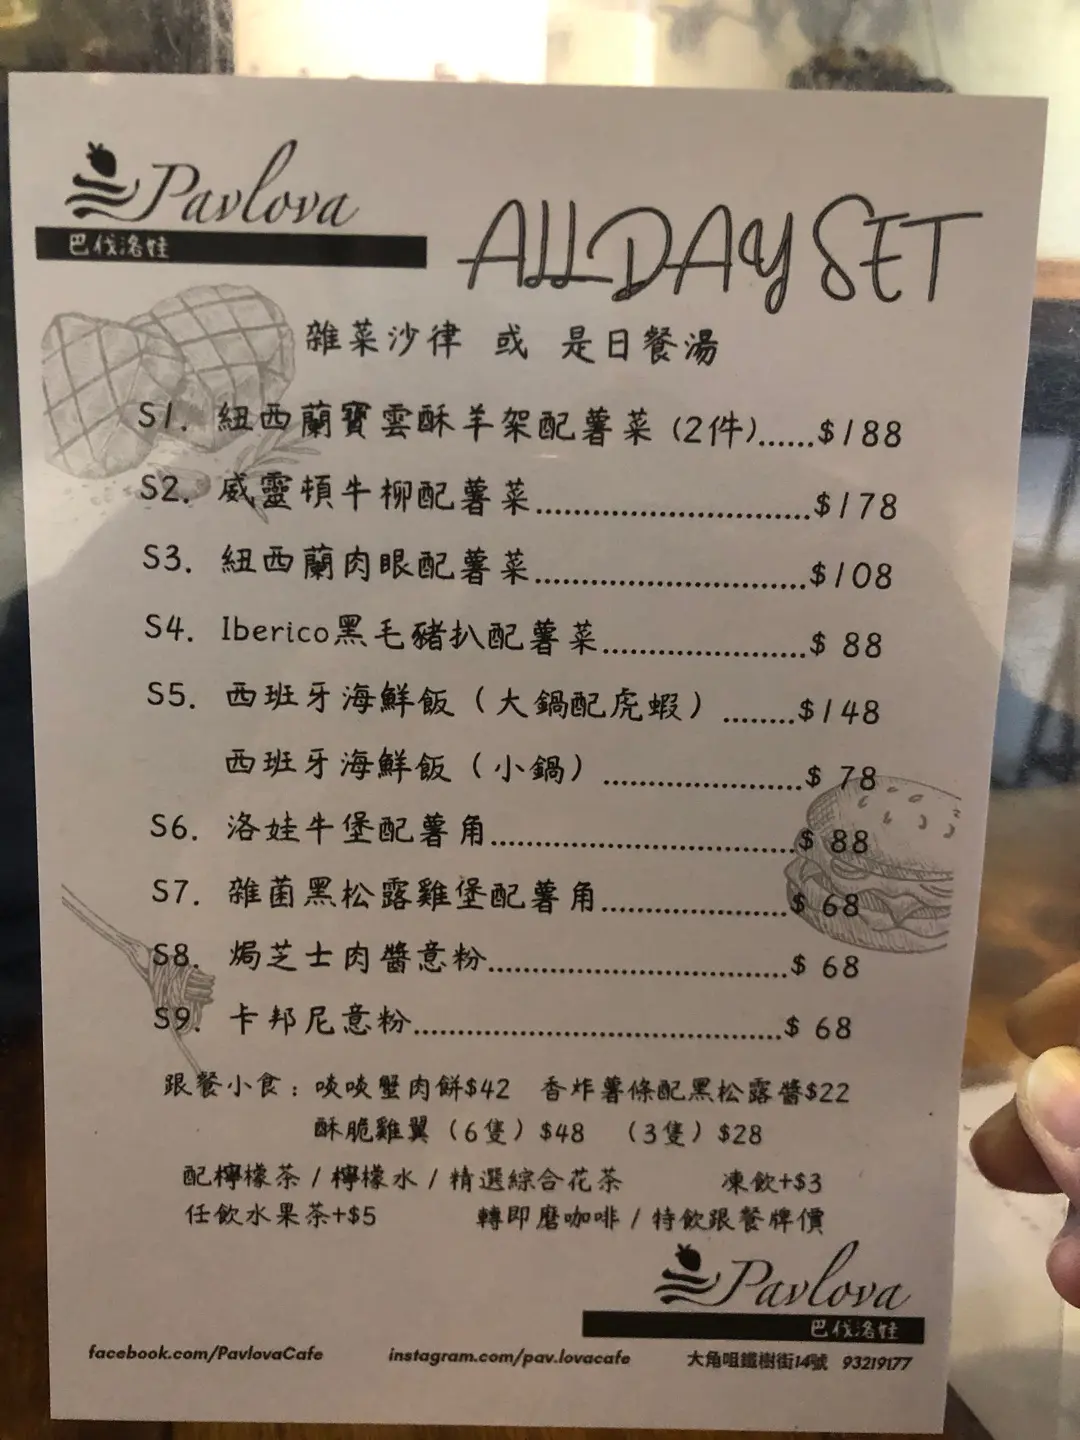 Pavlova
巴伐洛娃
ALL DAY SET
雜菜沙律 或 是日餐湯
S1. 紐西蘭寶雲酥羊架配薯菜 (2件)......$188
S2. 威靈頓牛柳配薯菜..............................$178
S3. 紐西蘭肉眼配薯菜..............................$108
S4. Iberico黑毛豬扒配薯菜......................$ 88
S5. 西班牙海鮮飯（大鍋配虎蝦）........$148
西班牙海鮮飯（小鍋）......................$ 78
S6. 洛娃牛堡配薯角.................................$ 88
S7. 雜菌黑松露雞堡配薯角....................$ 68
S8. 焗芝士肉醬意粉.................................$ 68
S9. 卡邦尼意粉.........................................$ 68
跟餐小食：啖啖蟹肉餅$42 香炸薯條配黑松露醬$22
酥脆雞翼（6隻）$48 （3隻）$28
配檸檬茶 / 檸檬水 / 精選綜合花茶 凍飲+$3
任飲水果茶+$5 轉即磨咖啡 / 特飲跟餐牌價
Pavlova
巴伐洛娃
facebook.com/PavlovaCafe instagram.com/pav.lovacafe 大角咀鐵樹街14號 93219177